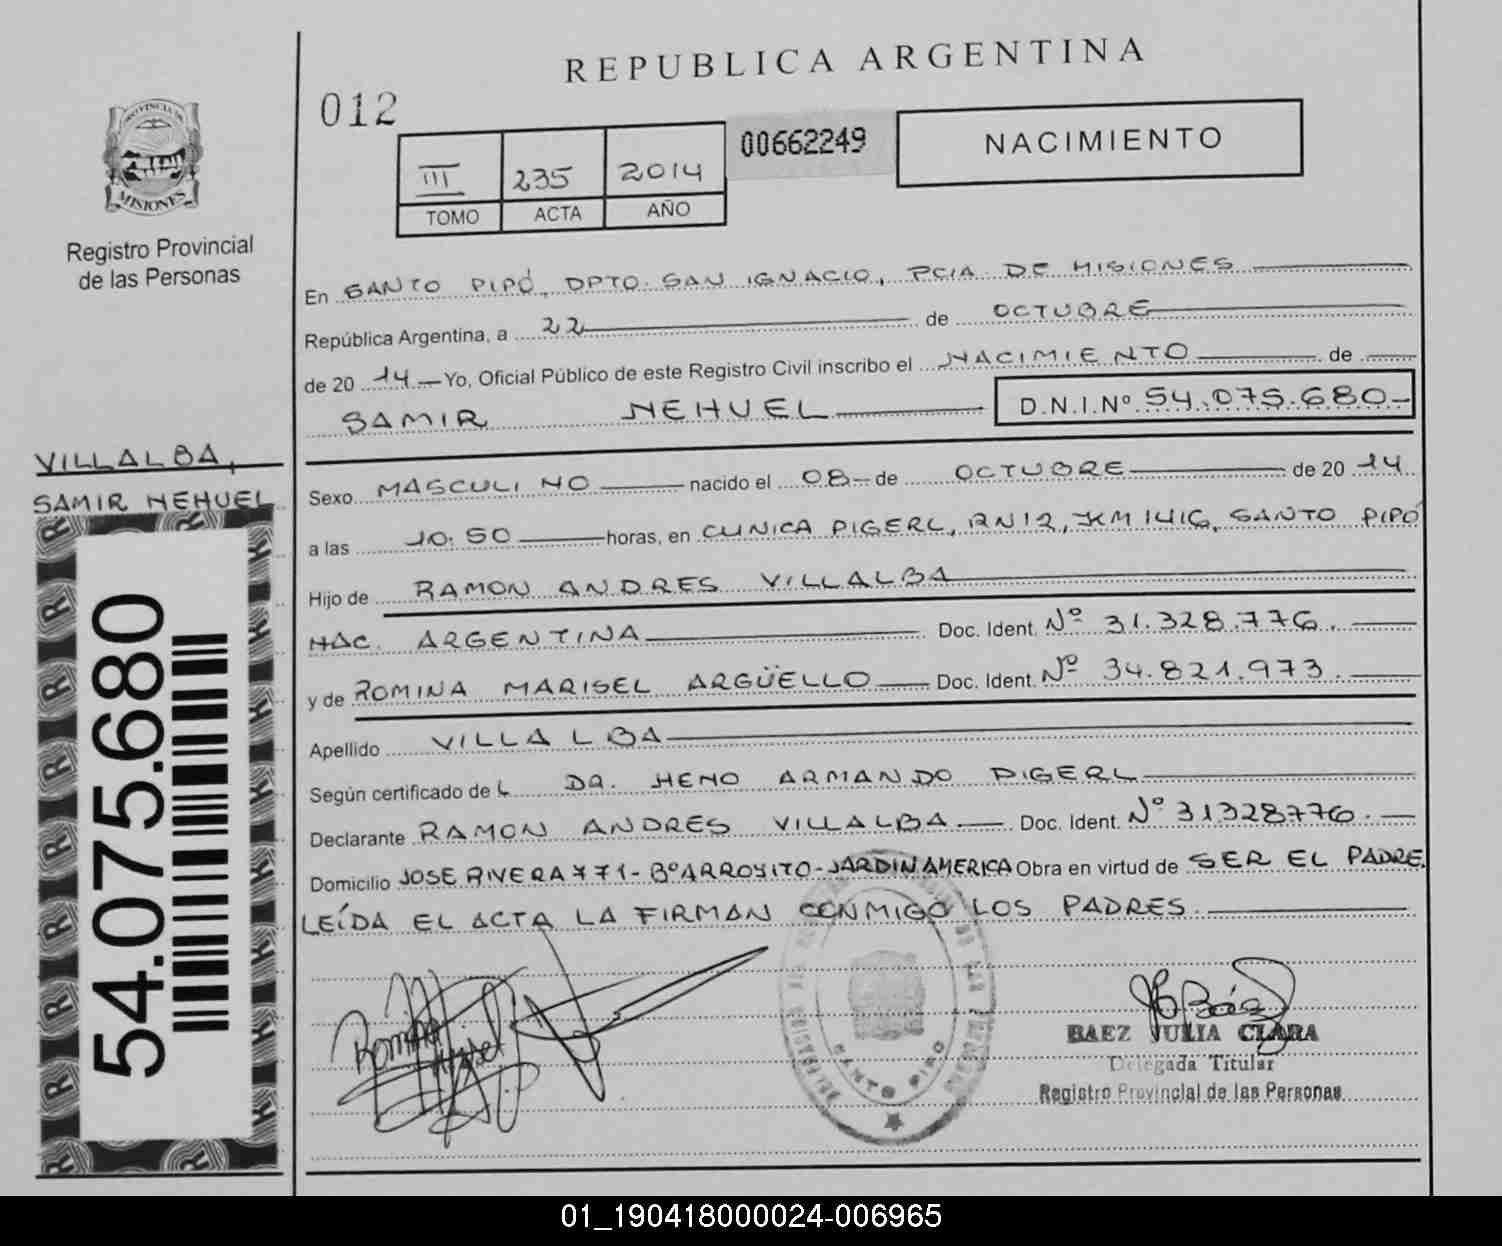 REPUBLICA ARGENTINA
012
PROVINCIA DE
MISIONES
Registro Provincial
de las Personas
III 235 2014
TOMO ACTA AÑO
00662249
NACIMIENTO
En SANTO PIPÓ, DPTO. SAN IGNACIO, PCIA DE MISIONES
República Argentina, a 22 de OCTUBRE
de 20 14 Yo, Oficial Público de este Registro Civil inscribo el NACIMIENTO de
SAMIR NEHUEL D.N.I.Nº 54.075.680-
VILLALBA,
SAMIR NEHUEL
54.075.680
Sexo MASCULINO nacido el 08 de OCTUBRE de 20 14
a las 10:50 horas, en CLINICA PIGERL, RN12, KM 1416, SANTO PIPÓ
Hijo de RAMON ANDRES VILLALBA
NAC. ARGENTINA Doc. Ident. Nº 31.328.776.
y de ROMINA MARISEL ARGÜELLO Doc. Ident. Nº 34.821.973.
Apellido VILLALBA
Según certificado de L DR. HENO ARMANDO PIGERL
Declarante RAMON ANDRES VILLALBA Doc. Ident. Nº 31328776.
Domicilio JOSE RIVERA 771- Bº ARROYITO- JARDIN AMERICA Obra en virtud de SER EL PADRE.
LEÍDA EL ACTA LA FIRMAN CONMIGO LOS PADRES.
Romina
Marisel
SANTO PIPO
JCBáez
BAEZ JULIA CLARA
Delegada Titular
Registro Provincial de las Personas
01_190418000024-006965